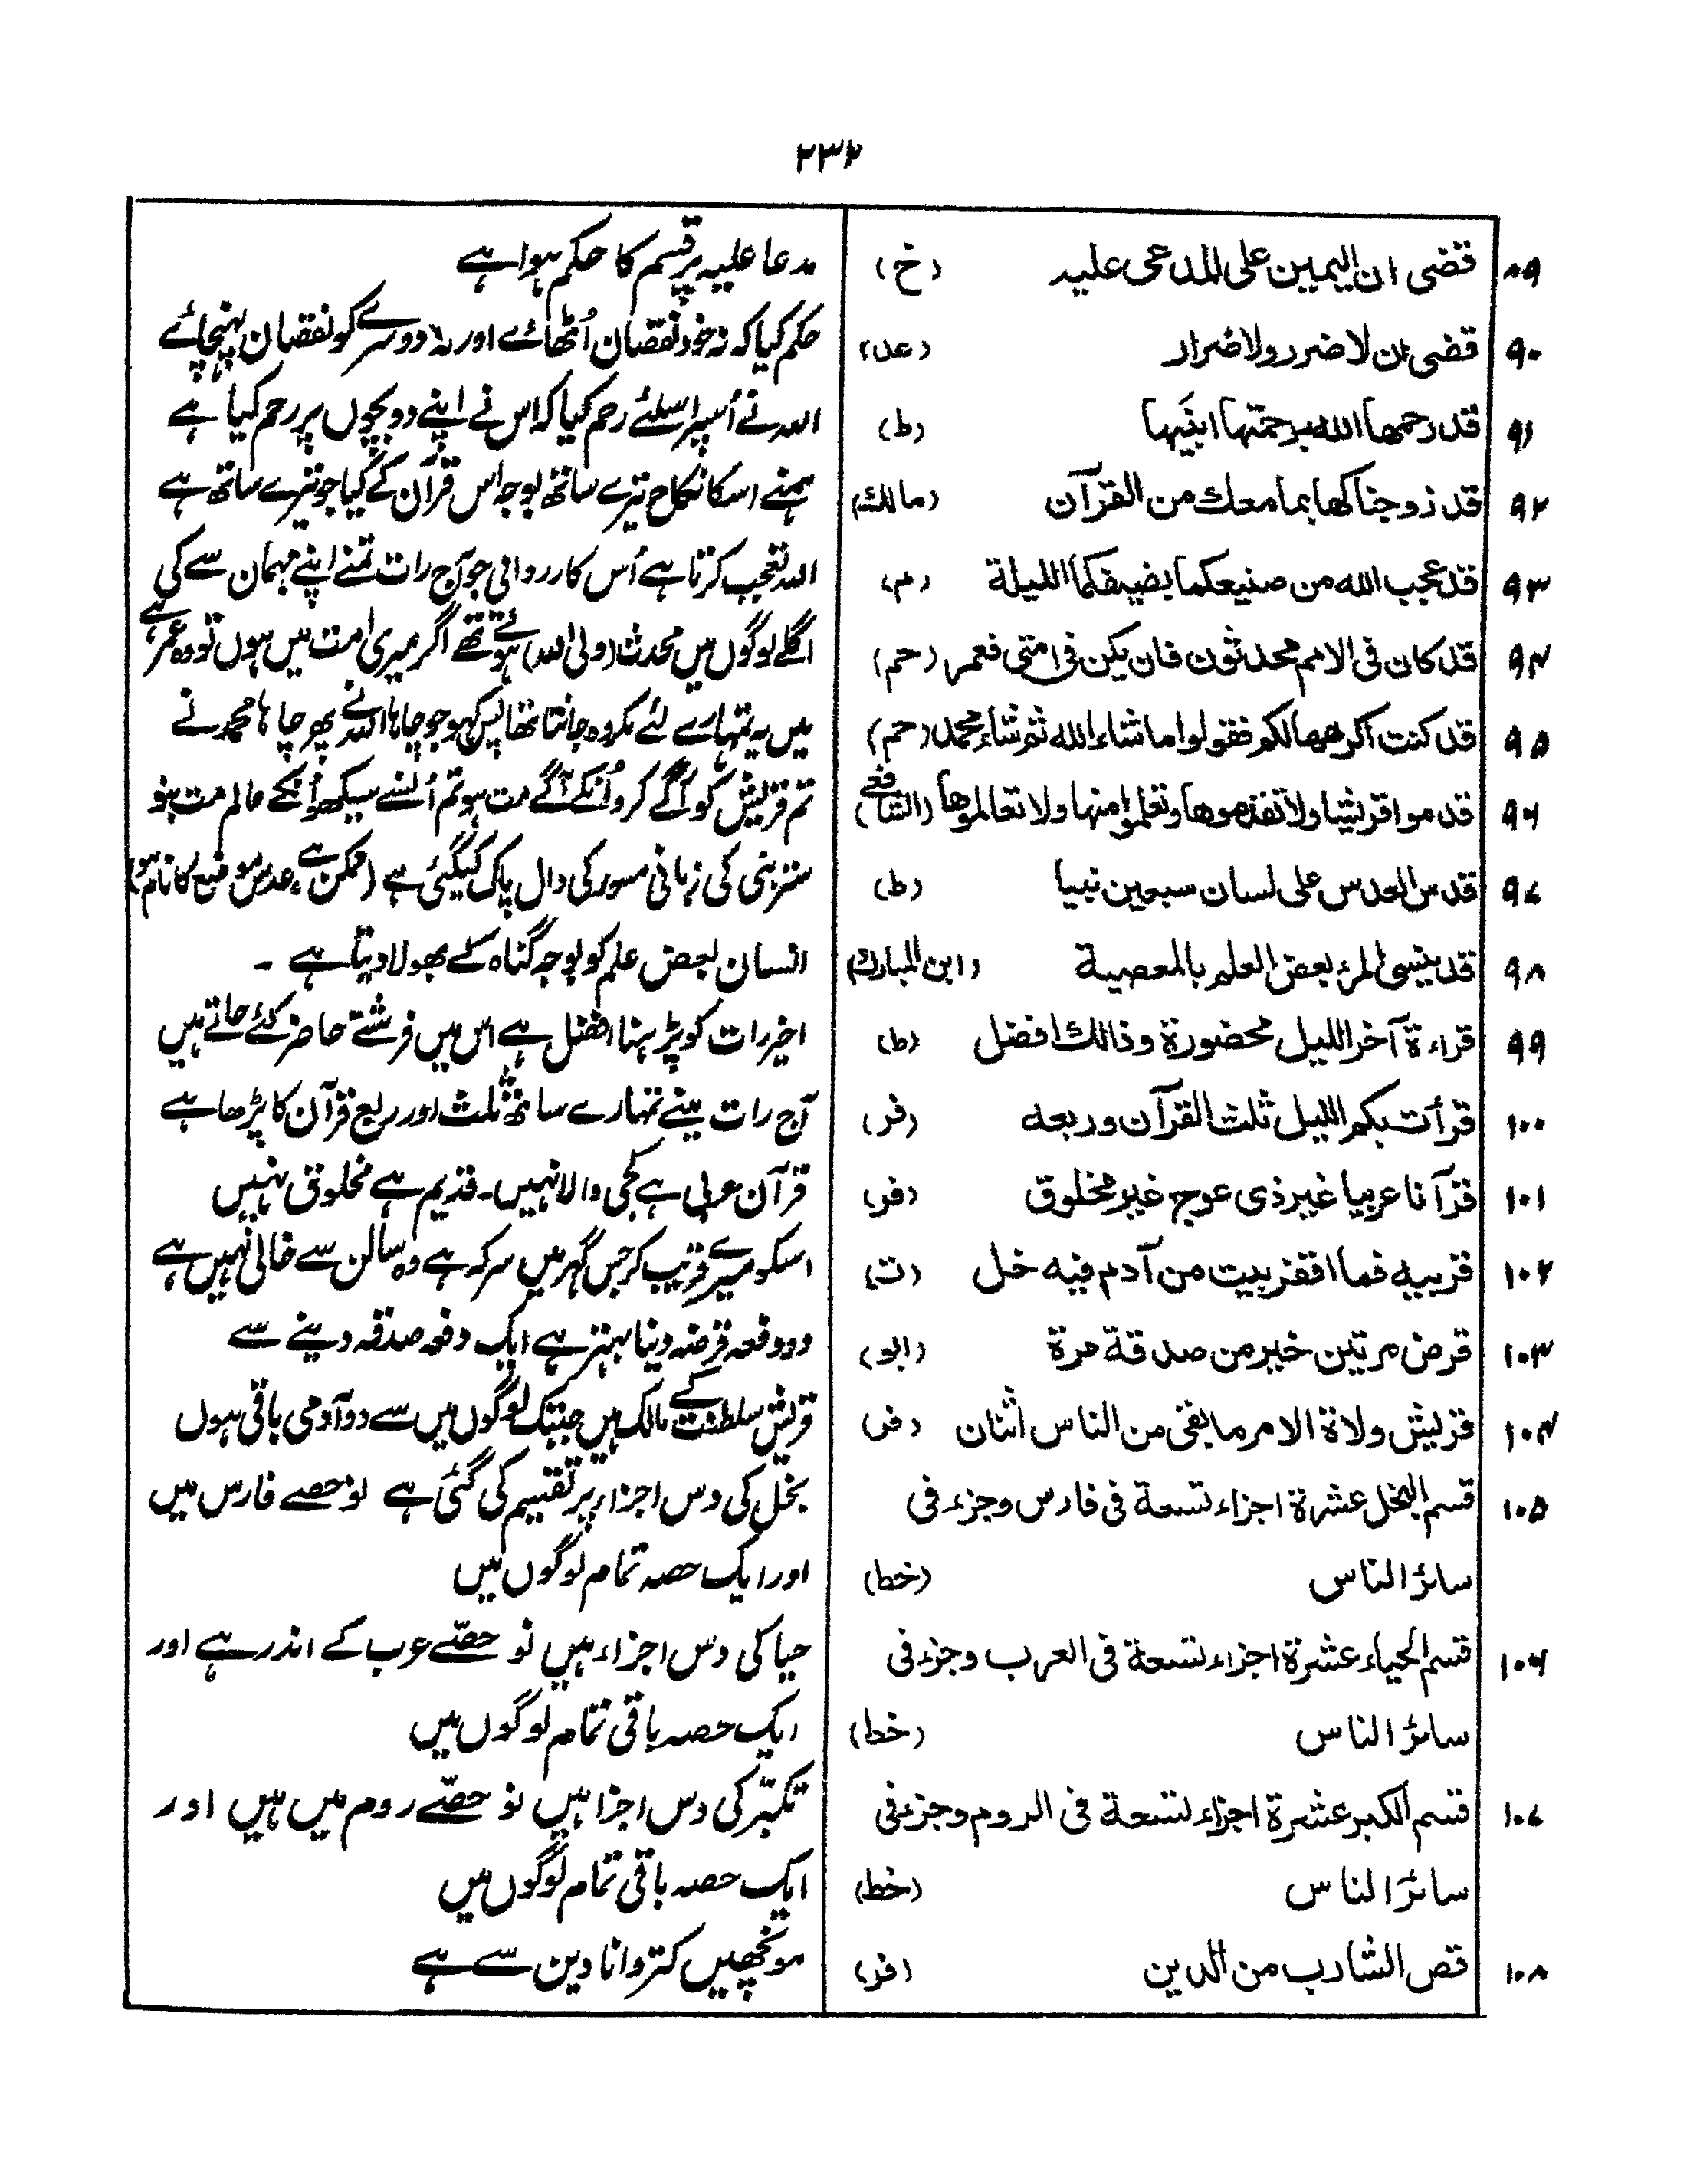 ۲۳۲
۸۹ قضى ان اليمين على المدعى عليه (خ) مدعا علیہ پر قسم کا حکم ہوا ہے
۹۰ قضى ان لا ضرر ولا ضرار (عد) حکم کیا کہ نہ خود نقصان اُٹھائے اور نہ دوسرے کو نقصان پہنچائے
۹۱ قد رحمها الله برحمتها ابنيها (ط) اللہ نے اُسپر اسلئے رحم کیا کہ اس نے اپنے دو بچوں پر رحم کیا ہے
۹۲ قد زوجناكها بما معك من القرآن (مالك) ہمنے اسکا نکاح تیرے ساتھ بوجہ اس قرآن کے کیا جو تیرے ساتھ ہے
۹۳ قد عجب الله من صنيعكما بضيفكما الليلة (م) اللہ تعجب کرتا ہے اُس کارروائی جو آج رات تمنے اپنے مہمان سے کی
۹۴ قد كان فى الامم محدثون فان يكن فى امتى فعمر (حم) اگلے لوگوں میں محدث (ولی اللہ) ہوئے تھے اگر میری امت میں ہوں تو وہ عمر ہے
۹۵ قد كنت اكرهها لكم فقولوا ما شاء الله ثم شاء محمد (حم) میں یہ تمہارے لئے مکروہ جانتا تھا پس کہو جو چاہا اللہ نے پھر چاہا محمد نے
۹۶ قدموا قريشا ولا تقدموها وتعلموا منها ولا تعالموها (الشافعى) تم قریش کو آگے کرو اُنکے آگے مت ہو تم اُنسے سیکھو اُنکے عالم مت بنو
۹۷ قدس العدس على لسان سبعين نبيا (ط) ستر نبی کی زبانی مسور کی دال پاک کیگئی ہے (ممکن ہے عدس موضع کا نام ہو)
۹۸ قد ينسى المرء بعض العلم بالمعصية (ابن المبارك) انسان بعض علم کو بوجہ گناہ کے بھولا دیتا ہے ۔
۹۹ قراءة آخر الليل محضورة وذالك افضل (ط) اخیر رات کو پڑہنا افضل ہے اس میں فرشتے حاضر کئے جاتے ہیں
۱۰۰ قرأت بكم الليل ثلث القرآن وربعه (فر) آج رات مینے تمہارے ساتھ ثلث اور ربع قرآن کا پڑھا ہے
۱۰۱ قرآنا عربيا غير ذى عوج غير مخلوق (فر) قرآن عربی ہے کجی والا نہیں۔ قدیم ہے مخلوق نہیں
۱۰۲ قربيه فما اقفر بيت من آدم فيه خل (ت) اسکو میرے قریب کر جس گہر میں سرکہ ہے وہ سالن سے خالی نہیں ہے
۱۰۳ قرض مرتين خير من صدقة مرة (ابو) دو دفعہ قرضہ دینا بہتر ہے ایک دفعہ صدقہ دینے سے
۱۰۴ قريش ولاة الامر ما بقى من الناس اثنان (فر) قریش سلطنت کے مالک ہیں جبتک لوگوں میں سے دو آدمی باقی ہوں
۱۰۵ قسم البخل عشرة اجزاء تسعة فى فارس وجزء فى بخل کی دس اجزاء پر تقسیم کی گئی ہے نو حصے فارس میں
سائر الناس (خط) اور ایک حصہ تمام لوگوں میں
۱۰۶ قسم الحياء عشرة اجزاء تسعة فى العرب وجزء فى حیا کی دس اجزاء ہیں نو حصّے عرب کے اندر ہے اور
سائر الناس (خط) ایک حصہ باقی تمام لوگوں میں
۱۰۷ قسم الكبر عشرة اجزاء تسعة فى الروم وجزء فى تکبّر کی دس اجزا ہیں نو حصّے روم میں ہیں اور
سائر الناس (خط) ایک حصہ باقی تمام لوگوں میں
۱۰۸ قص الشارب من الدين (فر) مونچھیں کتروانا دین سے ہے